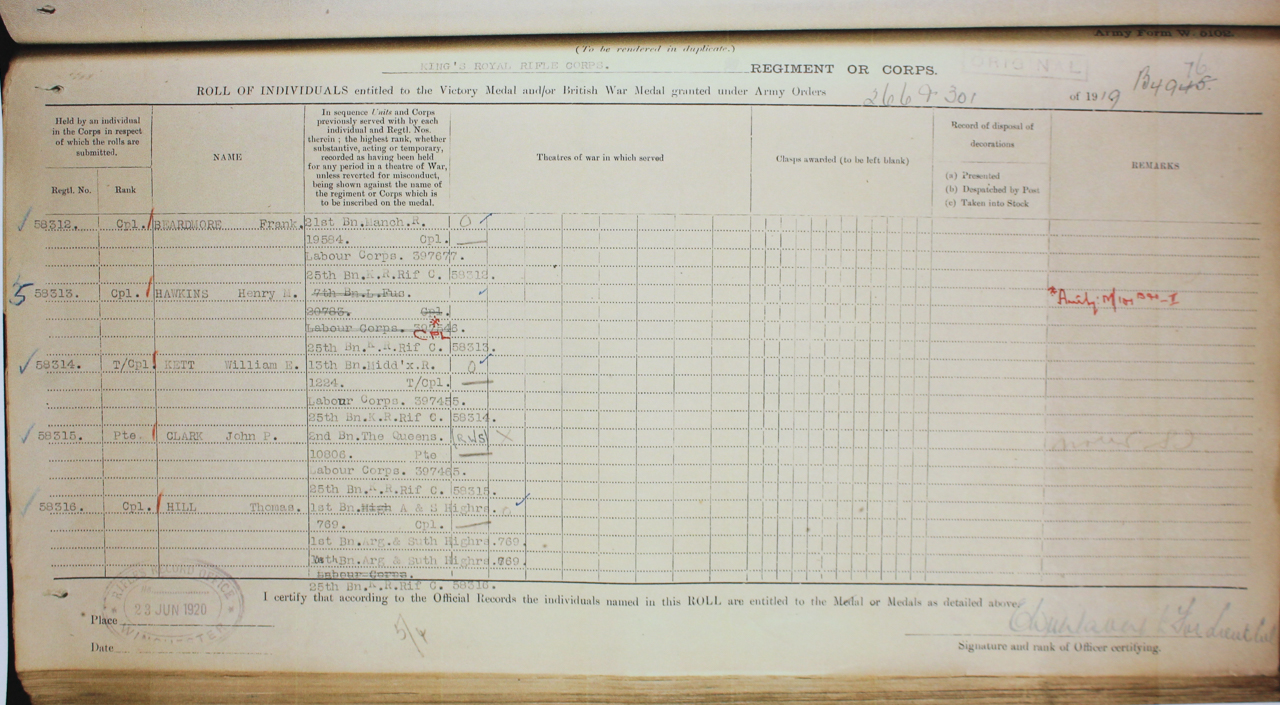 Army Form W. 5102.
(To be rendered in duplicate.)
KING'S ROYAL RIFLE CORPS. REGIMENT OR CORPS.
ORIGINAL
ROLL OF INDIVIDUALS entitled to the Victory Medal and/or British War Medal granted under Army Orders 266 & 301 of 1919
Held by an individual in the Corps in respect of which the rolls are submitted.
Regtl. No.
Rank
NAME
In sequence Units and Corps
previously served with by each
individual and Regtl. Nos.
therein ; the highest rank, whether
substantive, acting or temporary,
recorded as having been held
for any period in a theatre of War,
unless reverted for misconduct,
being shown against the name of
the regiment or Corps which is
to be inscribed on the medal.
Theatres of war in which served
Clasps awarded (to be left blank)
Record of disposal of
decorations
(a) Presented
(b) Despatched by Post
(c) Taken into Stock
REMARKS
58312. Cpl. BEARDMORE Frank. 21st Bn.Manch.R. O
19584. Cpl.
Labour Corps. 397677.
25th Bn.K.R.Rif C. 58312.
5 58313. Cpl. HAWKINS Henry M. 7th Bn.L.Fus.
Cpl.
Labour Corps.
CPL
25th Bn.K.R.Rif C. 58313.
58314. T/Cpl. KETT William E. 13th Bn.Midd'x.R. O
1224. T/Cpl.
Labour Corps. 397455.
25th Bn.K.R.Rif C. 58314.
58315. Pte. CLARK John P. 2nd Bn.The Queens. (RWS) X
10806. Pte
Labour Corps. 397465.
25th Bn.K.R.Rif C. 58315.
58316. Cpl. HILL Thomas. 1st Bn.High A & S Highrs.
769. Cpl.
1st Bn.Arg.& Suth Highrs.769.
Bn.Arg & Suth Highrs.769.
Labour Corps.
25th Bn.K.R.Rif C. 58316.
I certify that according to the Official Records the individuals named in this ROLL are entitled to the Medal or Medals as detailed above.
RIFLE RECORD OFFICE
23 JUN 1920
WINCHESTER
Place
Date
5/4
For Lieut Col
Signature and rank of Officer certifying.